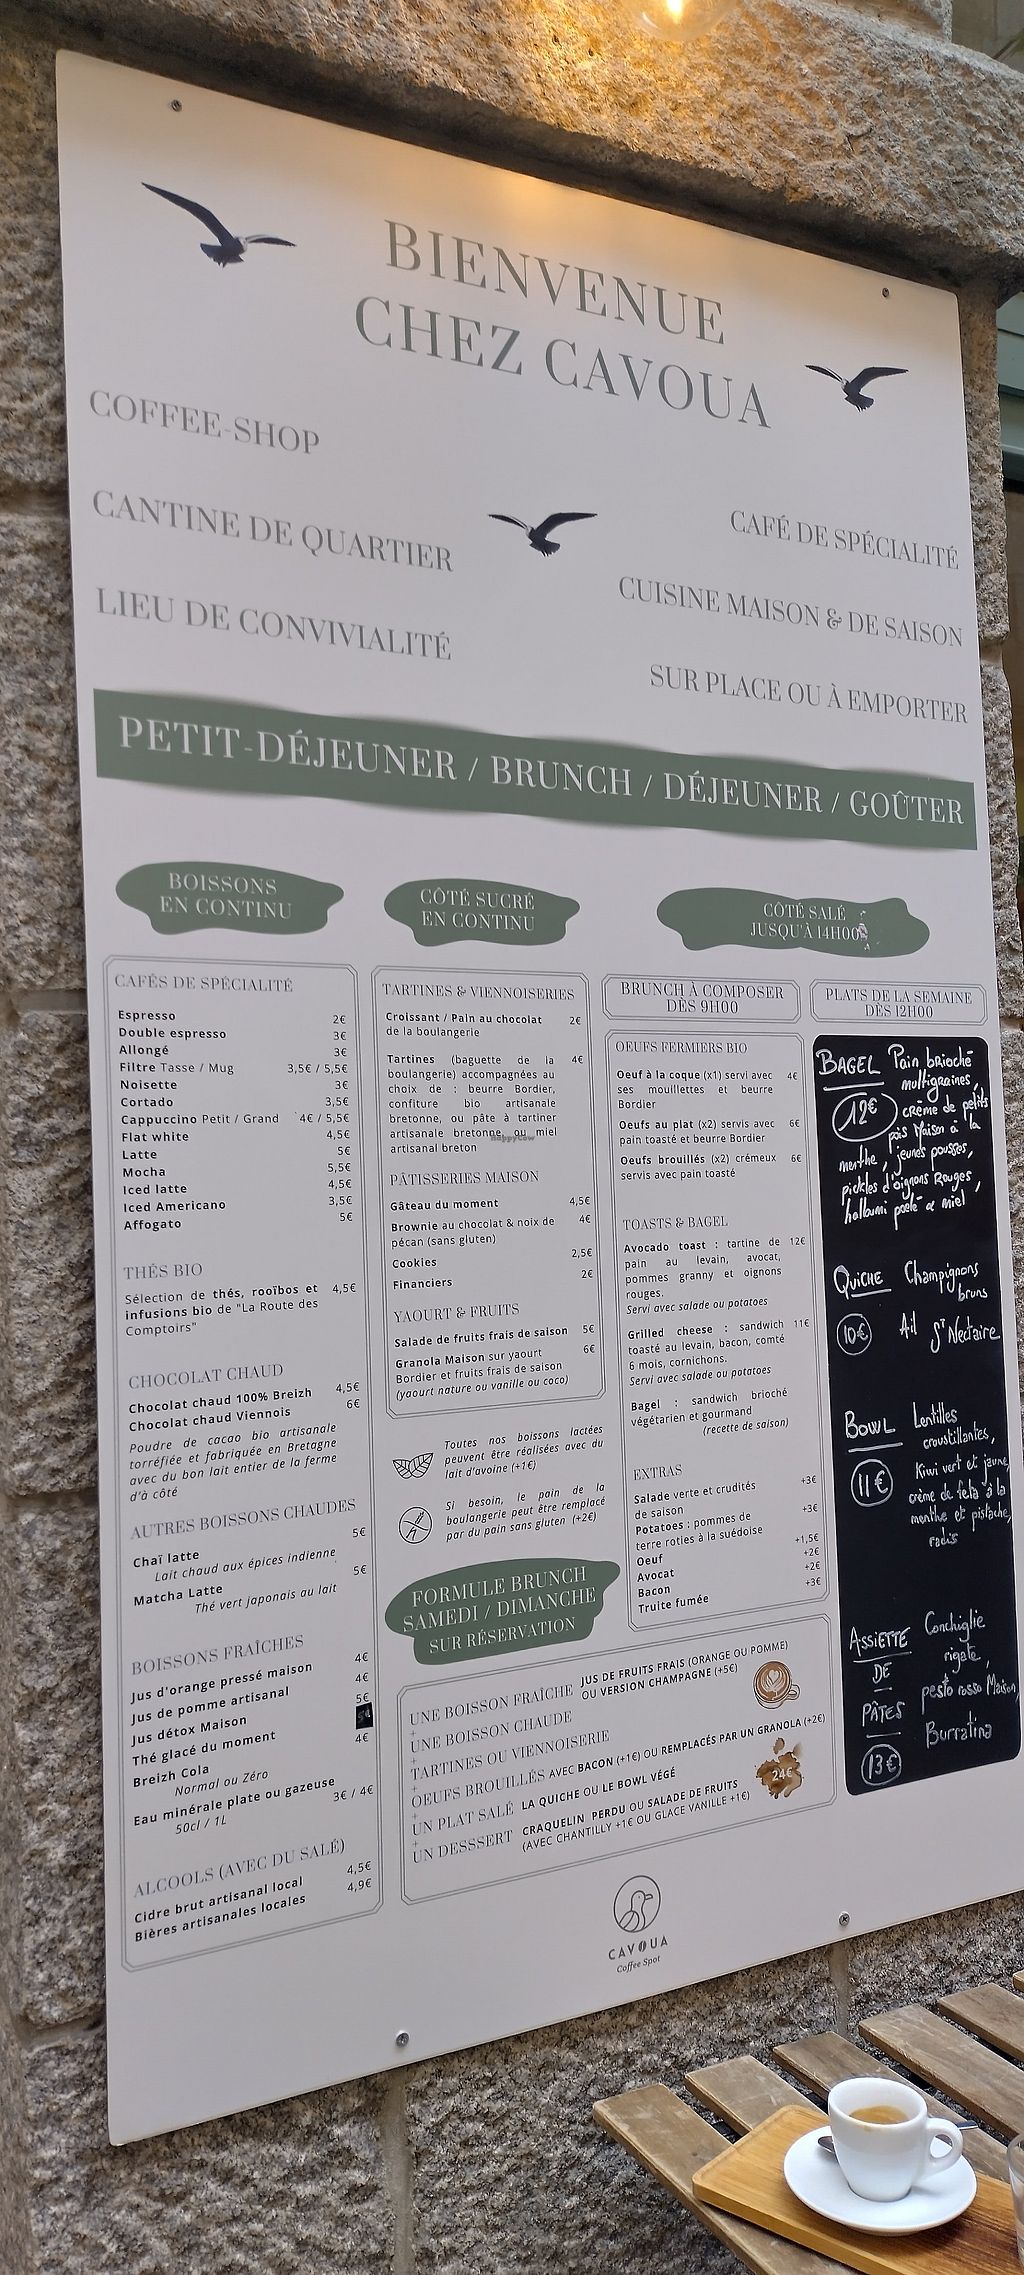 BIENVENUE
CHEZ CAVOUA
COFFEE-SHOP
CANTINE DE QUARTIER
LIEU DE CONVIVIALITÉ
CAFÉ DE SPÉCIALITÉ
CUISINE MAISON & DE SAISON
SUR PLACE OU À EMPORTER
PETIT-DÉJEUNER / BRUNCH / DÉJEUNER / GOÛTER
BOISSONS
EN CONTINU
CAFÉS DE SPÉCIALITÉ
Espresso 2€
Double espresso 3€
Allongé 3€
Filtre Tasse / Mug 3,5€ / 5,5€
Noisette 3€
Cortado 3,5€
Cappuccino Petit / Grand 4€ / 5,5€
Flat white 4,5€
Latte 5€
Mocha 5,5€
Iced latte 4,5€
Iced Americano 3,5€
Affogato 5€
THÉS BIO
Sélection de thés, rooïbos et 4,5€
infusions bio de "La Route des
Comptoirs"
CHOCOLAT CHAUD
Chocolat chaud 100% Breizh 4,5€
Chocolat chaud Viennois 6€
Poudre de cacao bio artisanale
torréfiée et fabriquée en Bretagne
avec du bon lait entier de la ferme
d'à côté
AUTRES BOISSONS CHAUDES
Chaï latte 5€
Lait chaud aux épices indienne
Matcha Latte 5€
Thé vert japonais au lait
BOISSONS FRAÎCHES
Jus d'orange pressé maison 4€
Jus de pomme artisanal 4€
Jus détox Maison 5€
Thé glacé du moment 5€
Breizh Cola 4€
Normal ou Zéro
Eau minérale plate ou gazeuse
50cl / 1L 3€ / 4€
ALCOOLS (AVEC DU SALÉ)
Cidre brut artisanal local 4,5€
Bières artisanales locales 4,9€
CÔTÉ SUCRÉ
EN CONTINU
TARTINES & VIENNOISERIES
Croissant / Pain au chocolat 2€
de la boulangerie
Tartines (baguette de la 4€
boulangerie) accompagnées au
choix de : beurre Bordier,
confiture bio artisanale
bretonne, ou pâte à tartiner
artisanale bretonne, ou miel
artisanal breton
happyCow
PÂTISSERIES MAISON
Gâteau du moment 4,5€
Brownie au chocolat & noix de 4€
pécan (sans gluten)
Cookies 2,5€
Financiers 2€
YAOURT & FRUITS
Salade de fruits frais de saison 5€
Granola Maison sur yaourt 6€
Bordier et fruits frais de saison
(yaourt nature ou vanille ou coco)
Toutes nos boissons lactées
peuvent être réalisées avec du
lait d'avoine (+1€)
Si besoin, le pain de la
boulangerie peut être remplacé
par du pain sans gluten (+2€)
CÔTÉ SALÉ
JUSQU'À 14H00
BRUNCH À COMPOSER
DÈS 9H00
OEUFS FERMIERS BIO
Oeuf à la coque (x1) servi avec 4€
ses mouillettes et beurre
Bordier
Oeufs au plat (x2) servis avec 6€
pain toasté et beurre Bordier
Oeufs brouillés (x2) crémeux 6€
servis avec pain toasté
TOASTS & BAGEL
Avocado toast : tartine de 12€
pain au levain, avocat,
pommes granny et oignons
rouges.
Servi avec salade ou potatoes
Grilled cheese : sandwich 11€
toasté au levain, bacon, comté
6 mois, cornichons.
Servi avec salade ou potatoes
Bagel : sandwich brioché
végétarien et gourmand
(recette de saison)
EXTRAS
Salade verte et crudités +3€
de saison
Potatoes : pommes de +3€
terre roties à la suédoise
Oeuf +1,5€
Avocat +2€
Bacon +2€
Truite fumée +3€
PLATS DE LA SEMAINE
DÈS 12H00
BAGEL Pain brioché
multigraines,
12€ crème de petits
pois Maison à la
menthe, jeunes pousses,
pickles d'oignons Rouges,
halloumi poêlé & miel
QUICHE Champignons
bruns
10€ Ail St Nectaire
BOWL Lentilles
croustillantes,
11€ Kiwi vert et jaune,
crème de feta à la
menthe et pistache,
radis
ASSIETTE Conchiglie
DE rigate,
PÂTES pesto rosso Maison,
Burratina
13€
FORMULE BRUNCH
SAMEDI / DIMANCHE
SUR RÉSERVATION
UNE BOISSON FRAÎCHE JUS DE FRUITS FRAIS (ORANGE OU POMME)
OU VERSION CHAMPAGNE (+5€)
+
UNE BOISSON CHAUDE
+
TARTINES OU VIENNOISERIE
+
OEUFS BROUILLÉS AVEC BACON (+1€) OU REMPLACÉS PAR UN GRANOLA (+2€)
+
UN PLAT SALÉ LA QUICHE OU LE BOWL VÉGÉ
+
UN DESSSERT CRAQUELIN PERDU OU SALADE DE FRUITS
(AVEC CHANTILLY +1€ OU GLACE VANILLE +1€)
24€
CAVOUA
Coffee Spot